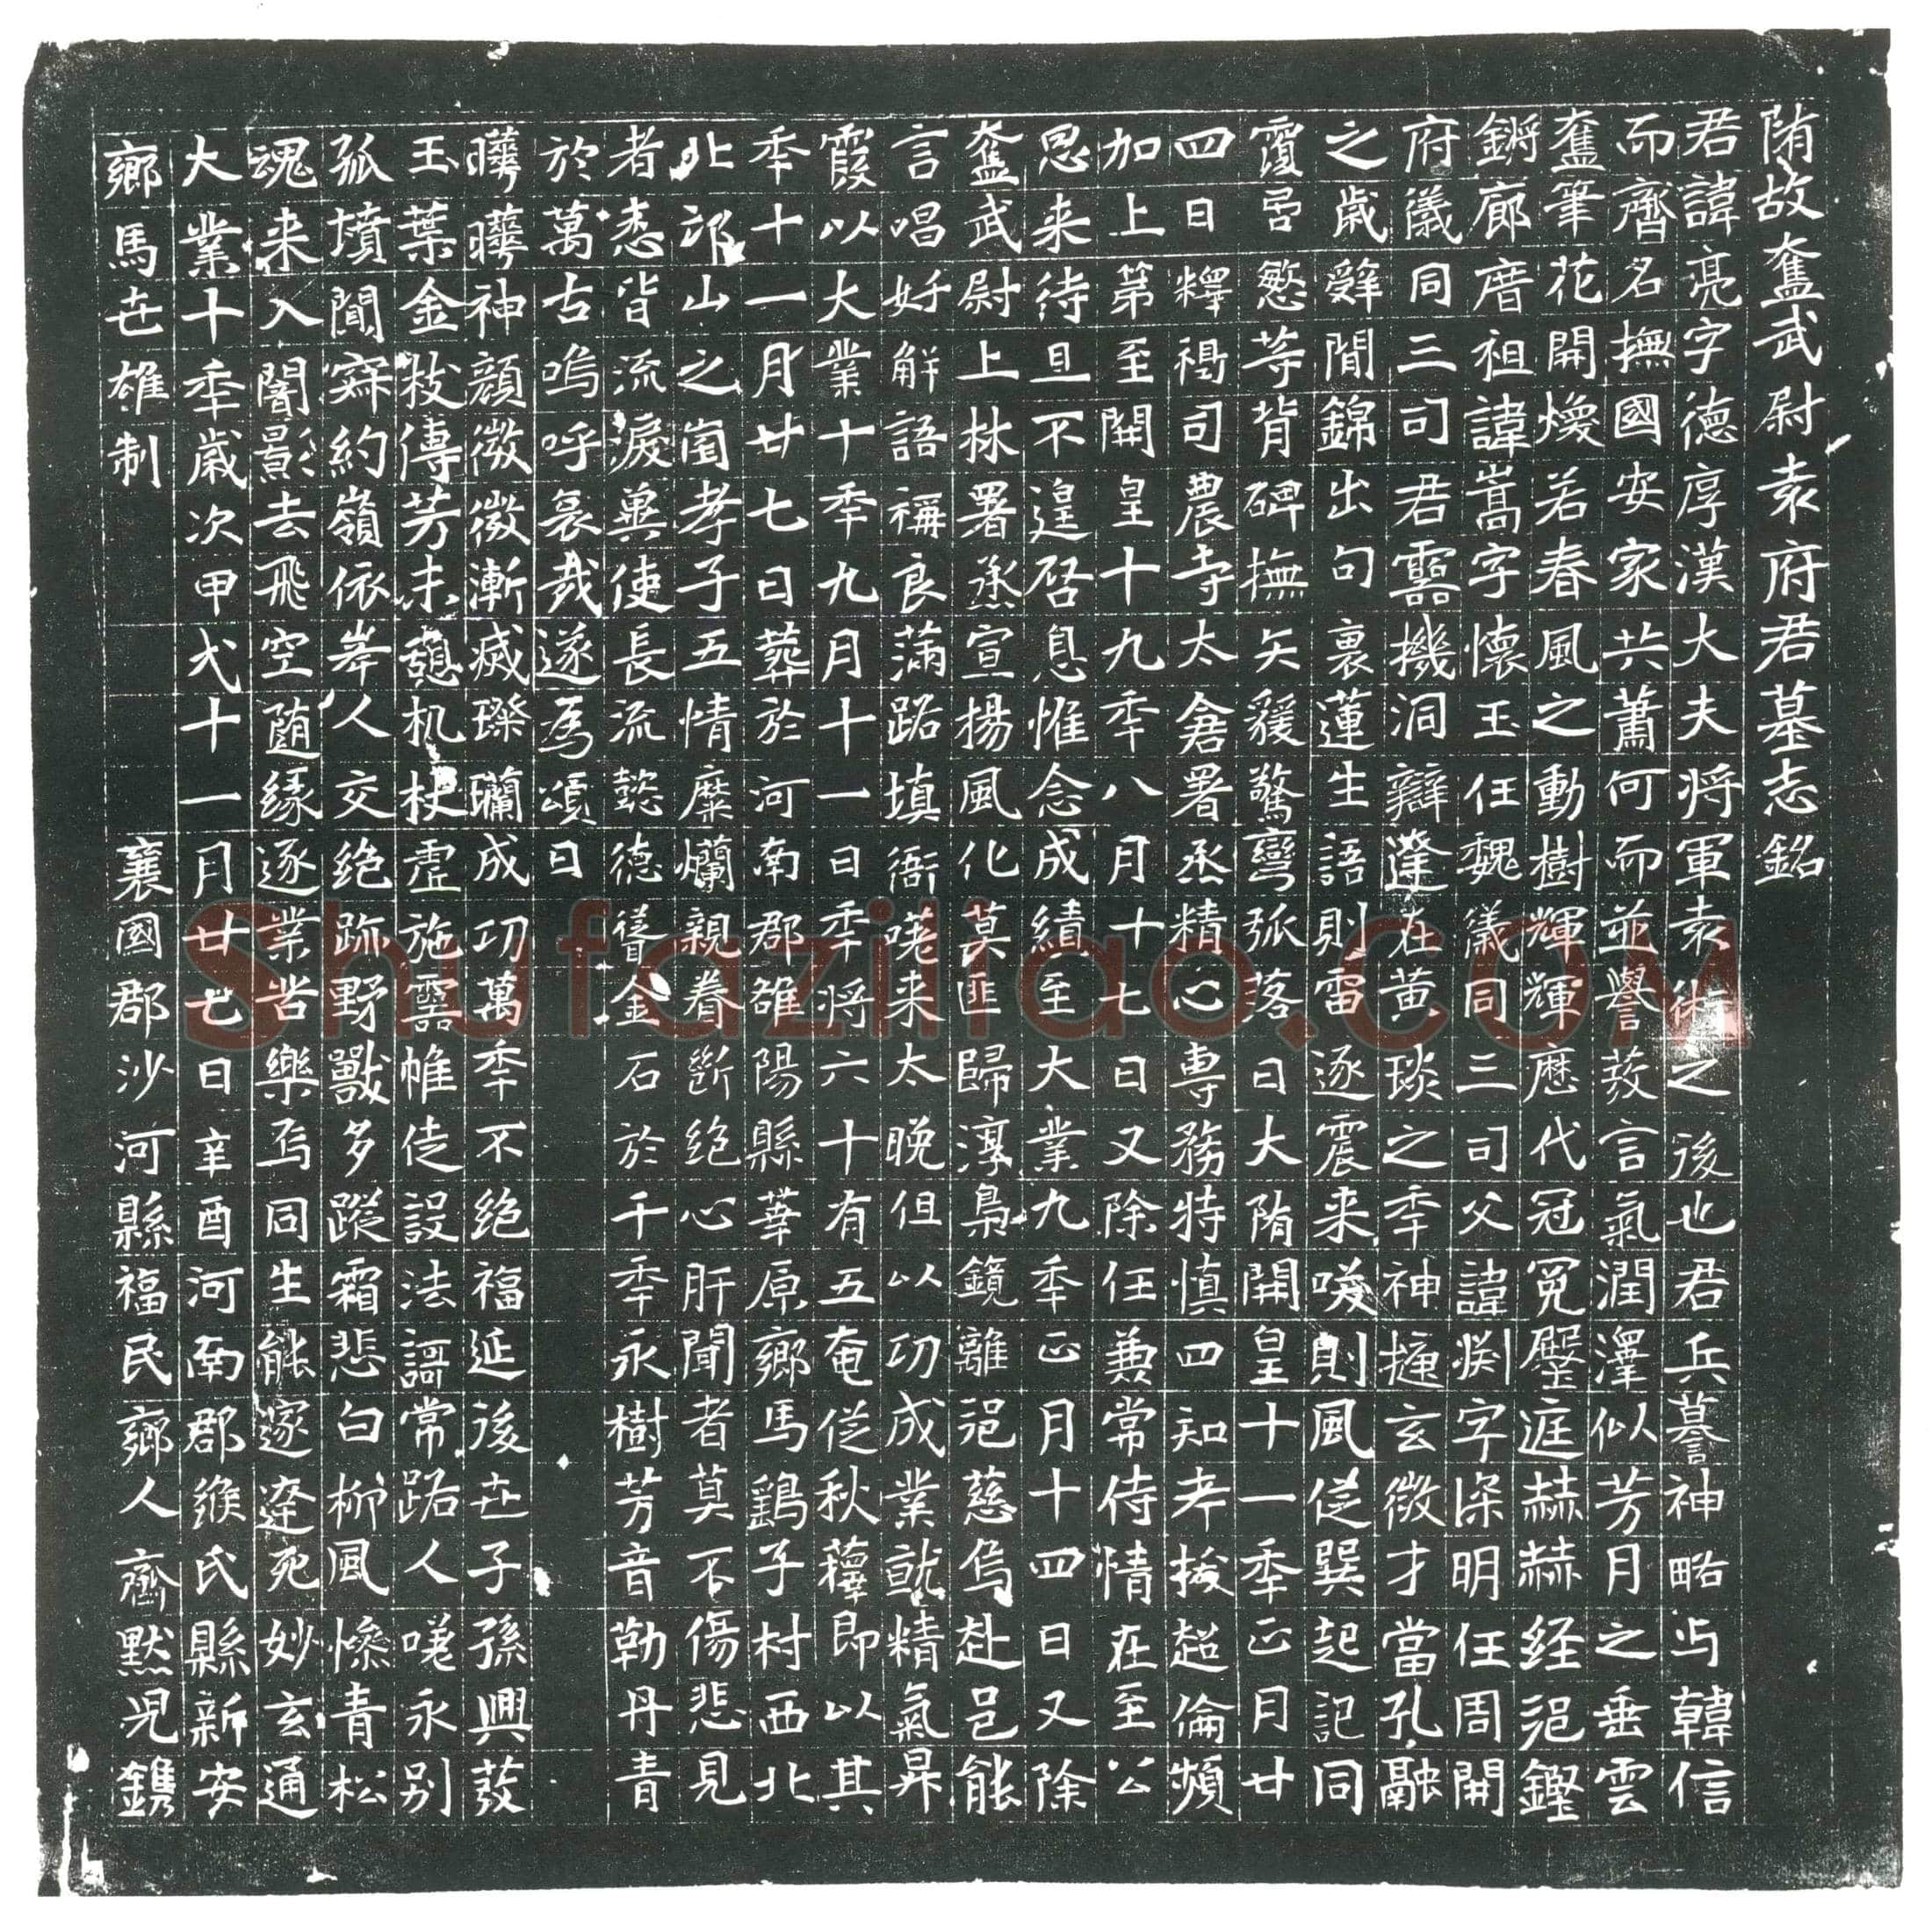 隋故奮武尉袁府君墓志銘
君諱亮字德厚漢大夫將軍袁術之後也君兵謩神略与韓信
而齊名撫國安家共蕭何而並譽薮言氣潤澤似芳月之垂雲
奮筆花開煥若春風之動樹輝輝歷代冠冕墀庭赫赫経邑鏗
鏘廊厝祖諱嵩字懷玉任魏儀同三司父諱渕字深明任周開
府儀同三司君靈機洞辯蓬在黄琰之季神摳玄微才當孔融
之歲辤間錦出句裏蓮生語則雷逐震来唉則風従巽起記同
覆局慜等背碑撫矢猨驚彎弧落日大隋開皇十一季正月廿
四日釋褐司農寺太倉署丞精心專務特慎四知考拔超倫頻
加上第至開皇十九季八月十七日又除任兼常侍情在至公
思来待旦不遑啓息惟念成績至大業九季正月十四日又除
奮武尉上林署丞宣揚風化莫匪歸淳梟鏡離邑慈烏赴邑能
言唱好解語稱良滿路填衙嘆来太晚但以功成業就精氣昇
霞以大業十季九月十一日季將六十有五奄従秋蘀即以其
季十一月廿七日葬於河南郡雒陽縣華原鄉馬鷄子村西北
北邙山之崗孝子五情糜爛親眷斷絶心肝聞者莫不傷悲見
者悉皆流淚冀使長流懿德聳金石於千季永樹芳音勒丹青
於萬古嗚呼哀哉遂為頌曰
曄曄神顔微微漸滅璨斓成功萬季不絶福延後世子孫興蕟
玉葉金枝傳芳未憩机杖虚施靈帷徒設法謌常路人嘆永别
孤墳閴寂約嶺依峯人交絶跡野獸多蹤霜悲白柳風慘青松
魂来入闇影去飛空随緣逐業苦樂焉同生能邃遼死妙玄通
大業十季歲次甲弌十一月廿七日辛酉河南郡緱氏縣新安
鄉馬世雄制　襄國郡沙河縣福民鄉人齊默児鐫